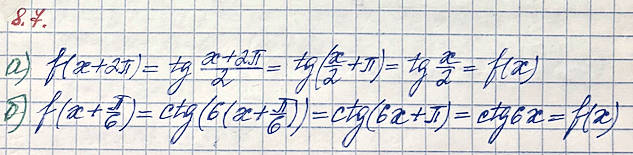 8.7.
а) f(x+2π) = tg (x+2π)/2 = tg(x/2 + π) = tg x/2 = f(x)
б) f(x+π/6) = ctg(6(x+π/6)) = ctg(6x+π) = ctg6x = f(x)